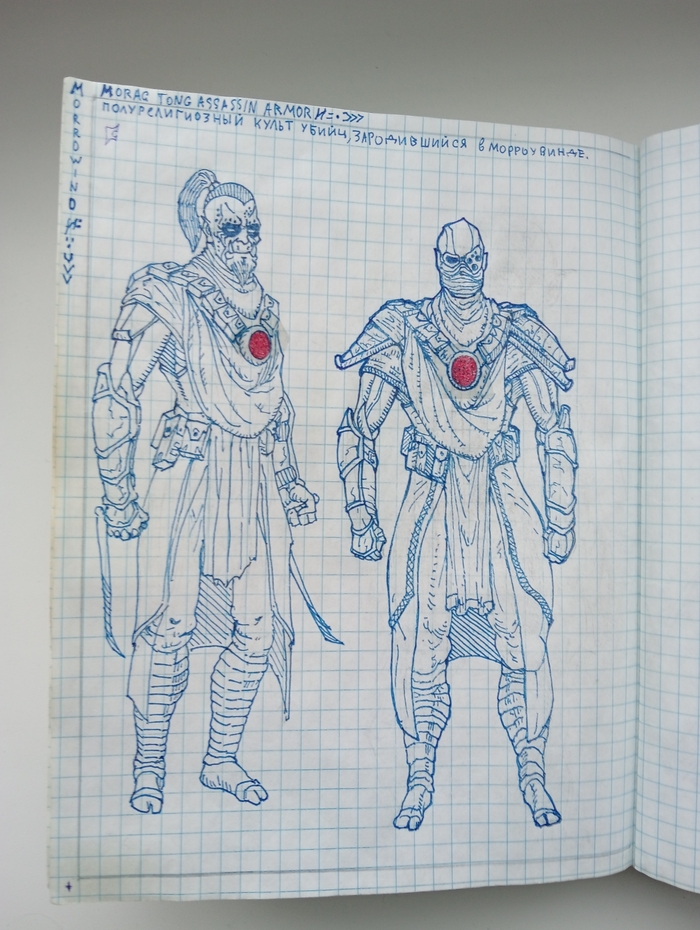 MORAG TONG ASSASSIN ARMOR
ПОЛУРЕЛИГИОЗНЫЙ КУЛЬТ УБИЙЦ, ЗАРОДИВШИЙСЯ В МОРРОУВИНДЕ.
MORROWIND